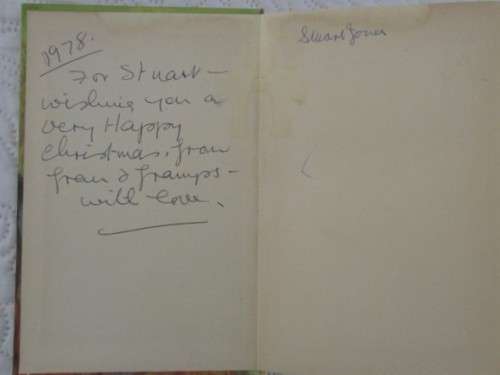 1978.
For Stuart -
wishing you a
very Happy
Christmas, from
Gran & Gramps -
with love.
Stuart Jones